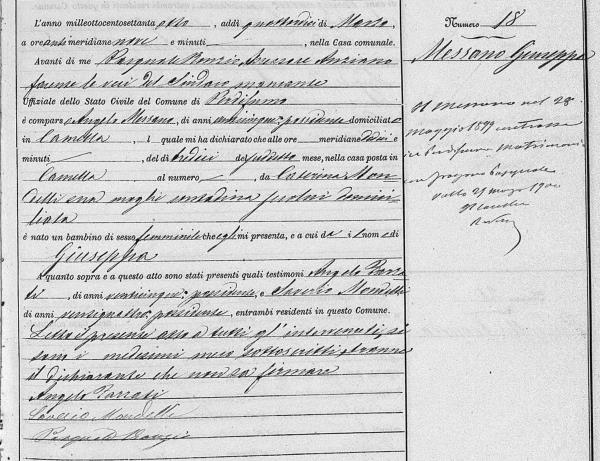 L'anno milleottocentosettanta otto, addì quattordici di Marzo,
a ore antimeridiane nove e minuti, nella Casa comunale.
Avanti di me Pasquale Assessore Anziano
facente le veci del Sindaco mancante
Uffiziale dello Stato Civile del Comune di Perdifumo
è comparso Angelo Messano, di anni venticinque, possidente domiciliato
in Camella, il quale mi ha dichiarato che alle ore meridiane dodici e
minuti, del dì tredici del suddetto mese, nella casa posta in
Camella al numero, da Caterina Mon
delli sua moglie contadina seco lui domici
liata
è nato un bambino di sesso femminile che egli mi presenta, e a cui dà il nome di
Giuseppa
A quanto sopra e a questo atto sono stati presenti quali testimoni Angelo Parra
ti, di anni venticinque, possidente, e Saverio Mondelli
di anni ventiquattro, possidente, entrambi residenti in questo Comune.
Letto il presente atto a tutti gl'intervenuti, si
sono i medesimi meco sottoscritti, tranne
il dichiarante che non sa firmare
Angelo Parrati
Saverio Mondelli
Numero 18
Messano Giuseppa
nel 28
maggio 1899
in Perdifumo matrimonio
con Pasquale